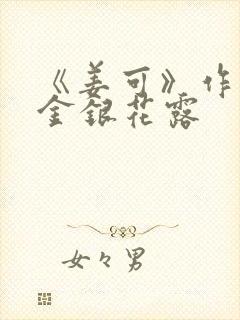 《姜可》作
金银花露
女々男